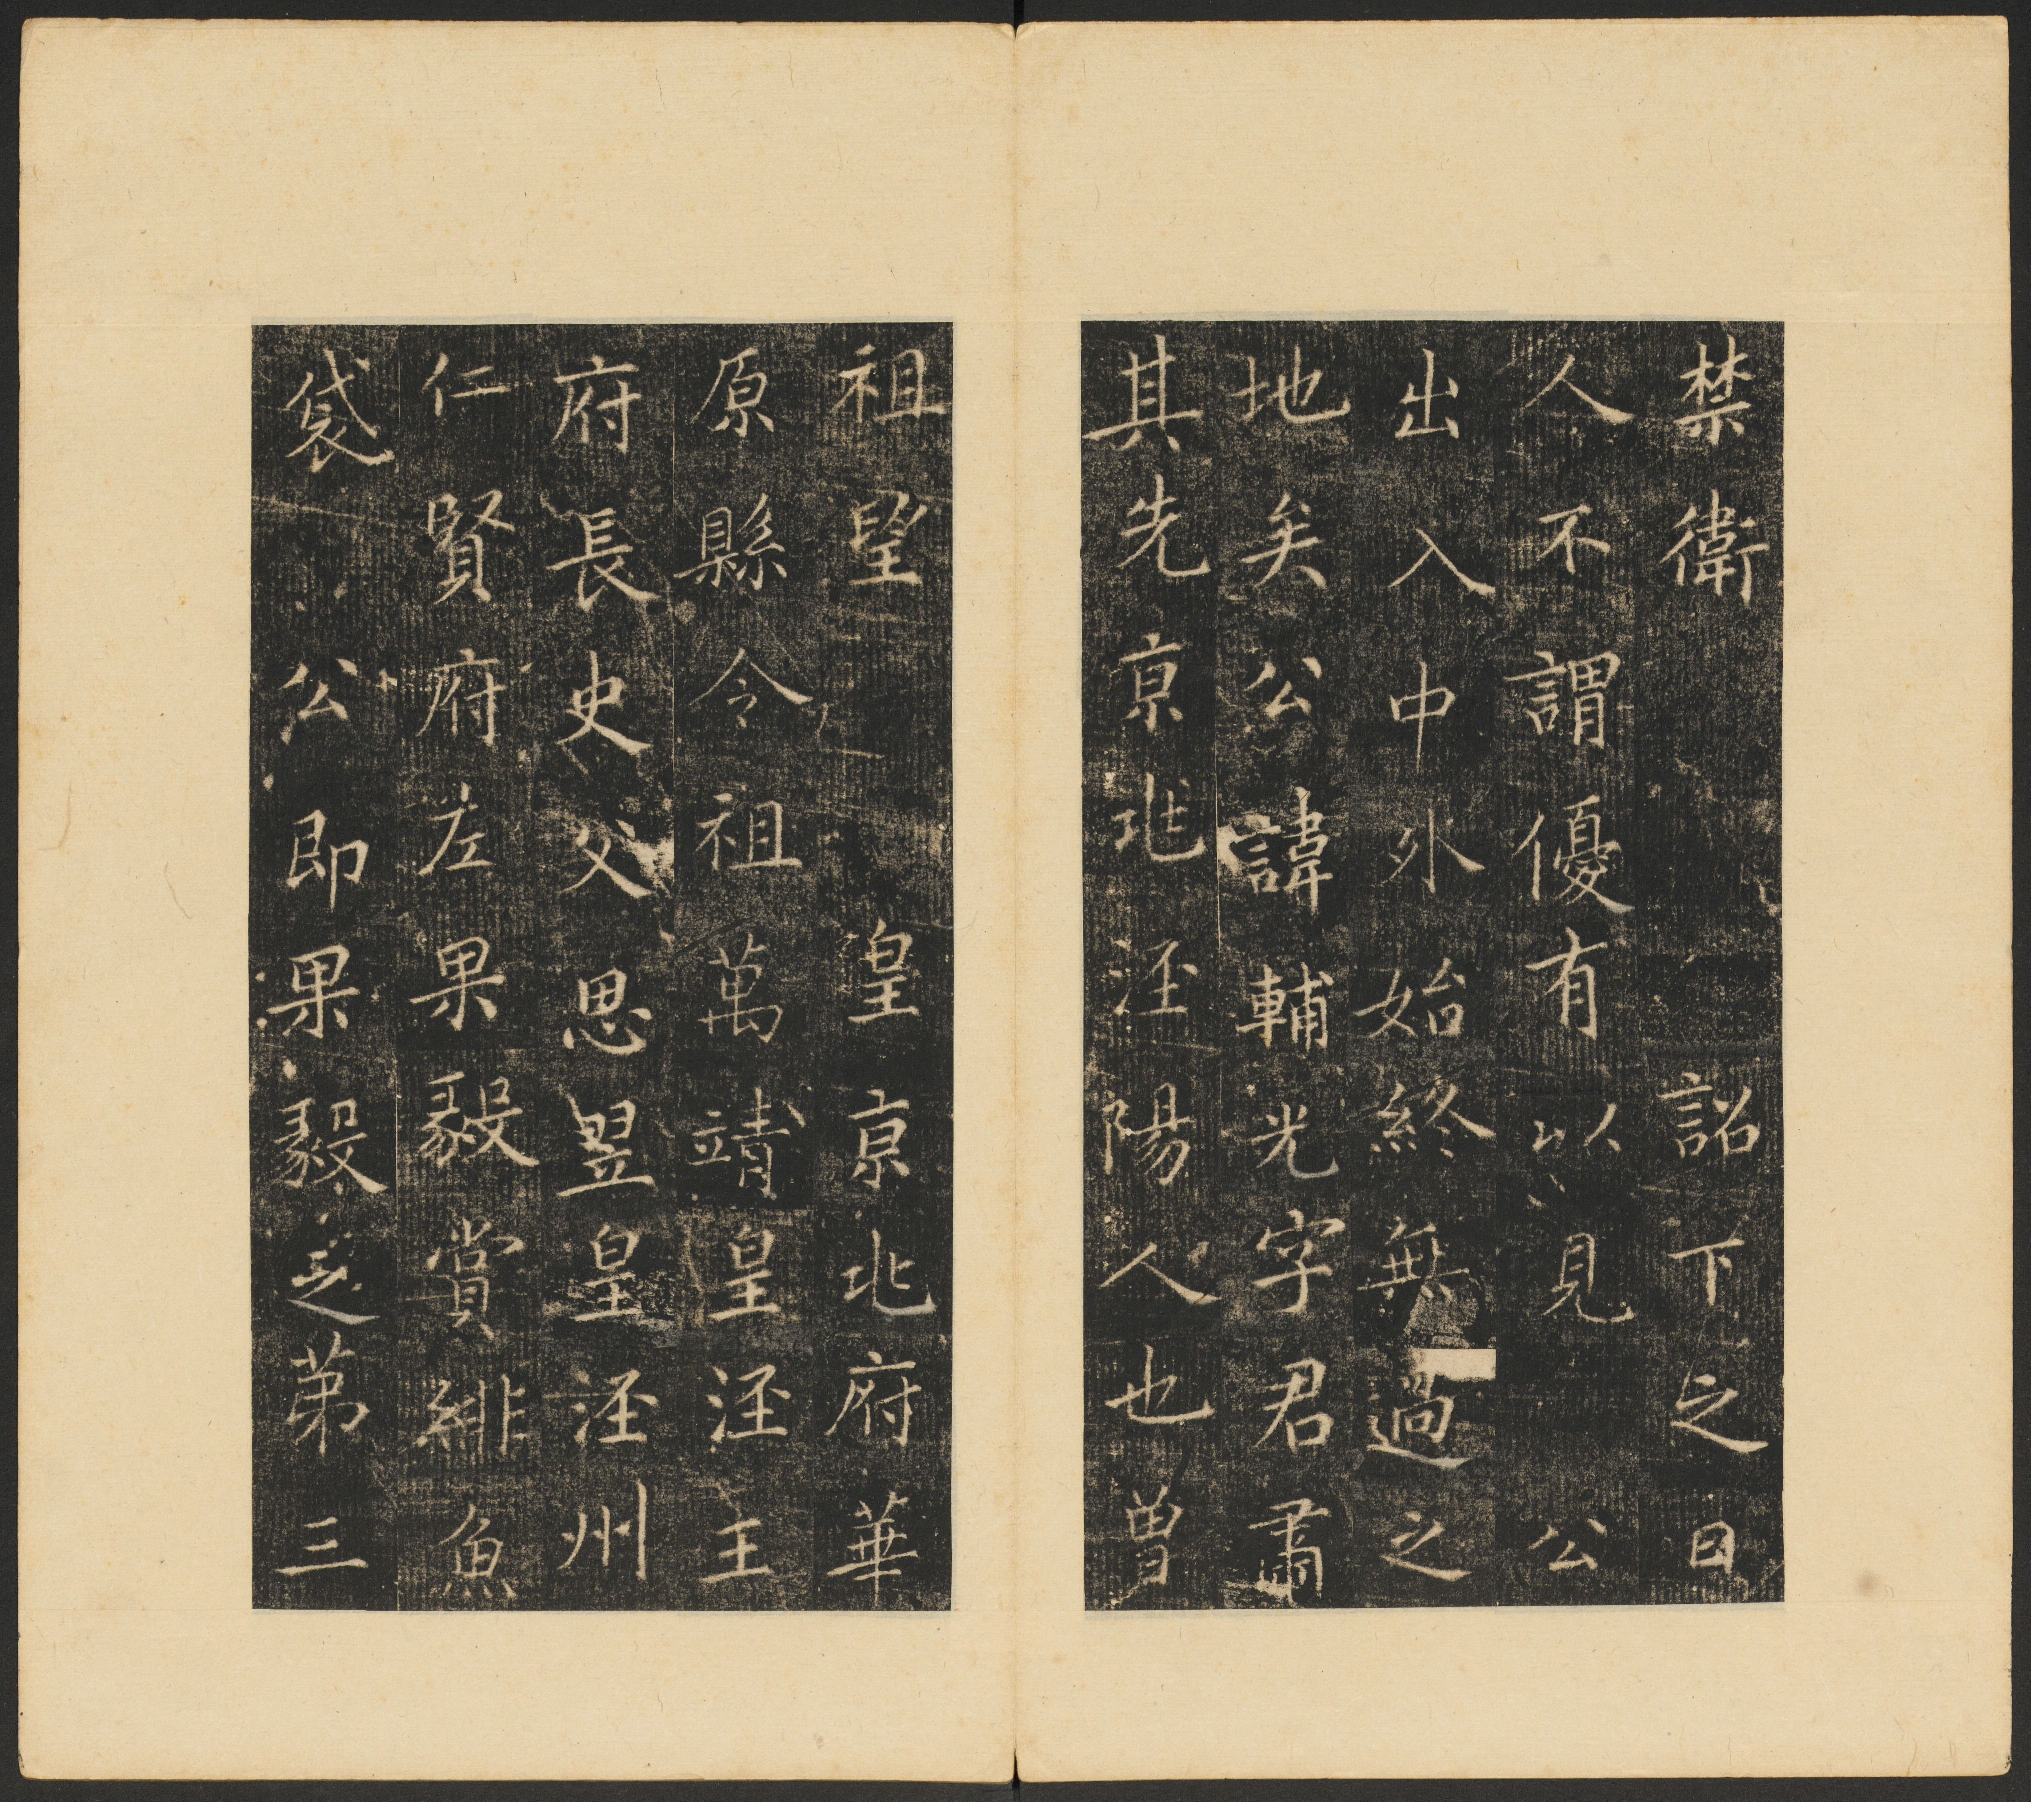 禁衛詔下之日
人不謂優有以見公
出入中外始終無過之
地矣公諱輔光字君肅
其先京兆涇陽人也曽
祖望皇京兆府華
原縣令祖萬靖皇涇王
府長史父思翌皇涇州
仁賢府左果毅賞緋魚
袋公即果毅之第三